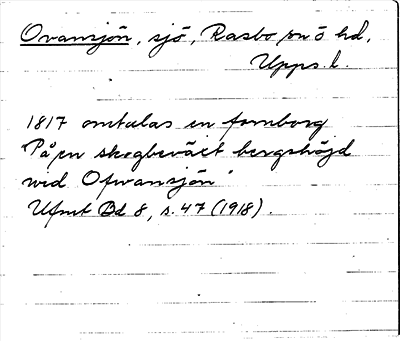 Ovansjön, sjö, Rasbo sn ö hd,
Upps. l.
1817 omtalas en fornborg
"På en skogbeväxt bergshöjd
wid Ofwansjön"
Ufmt Bd 8, s. 47 (1918).